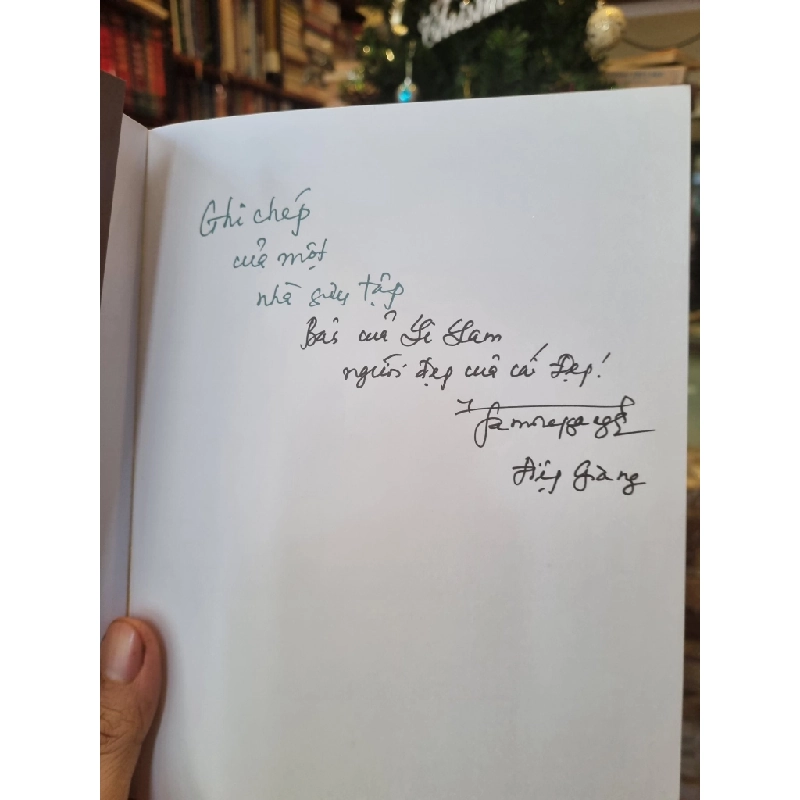 Ghi chép
của một
nhà sưu tập
Bản của Lê Lam
người đẹp của cái Đẹp!
Điệp Giang